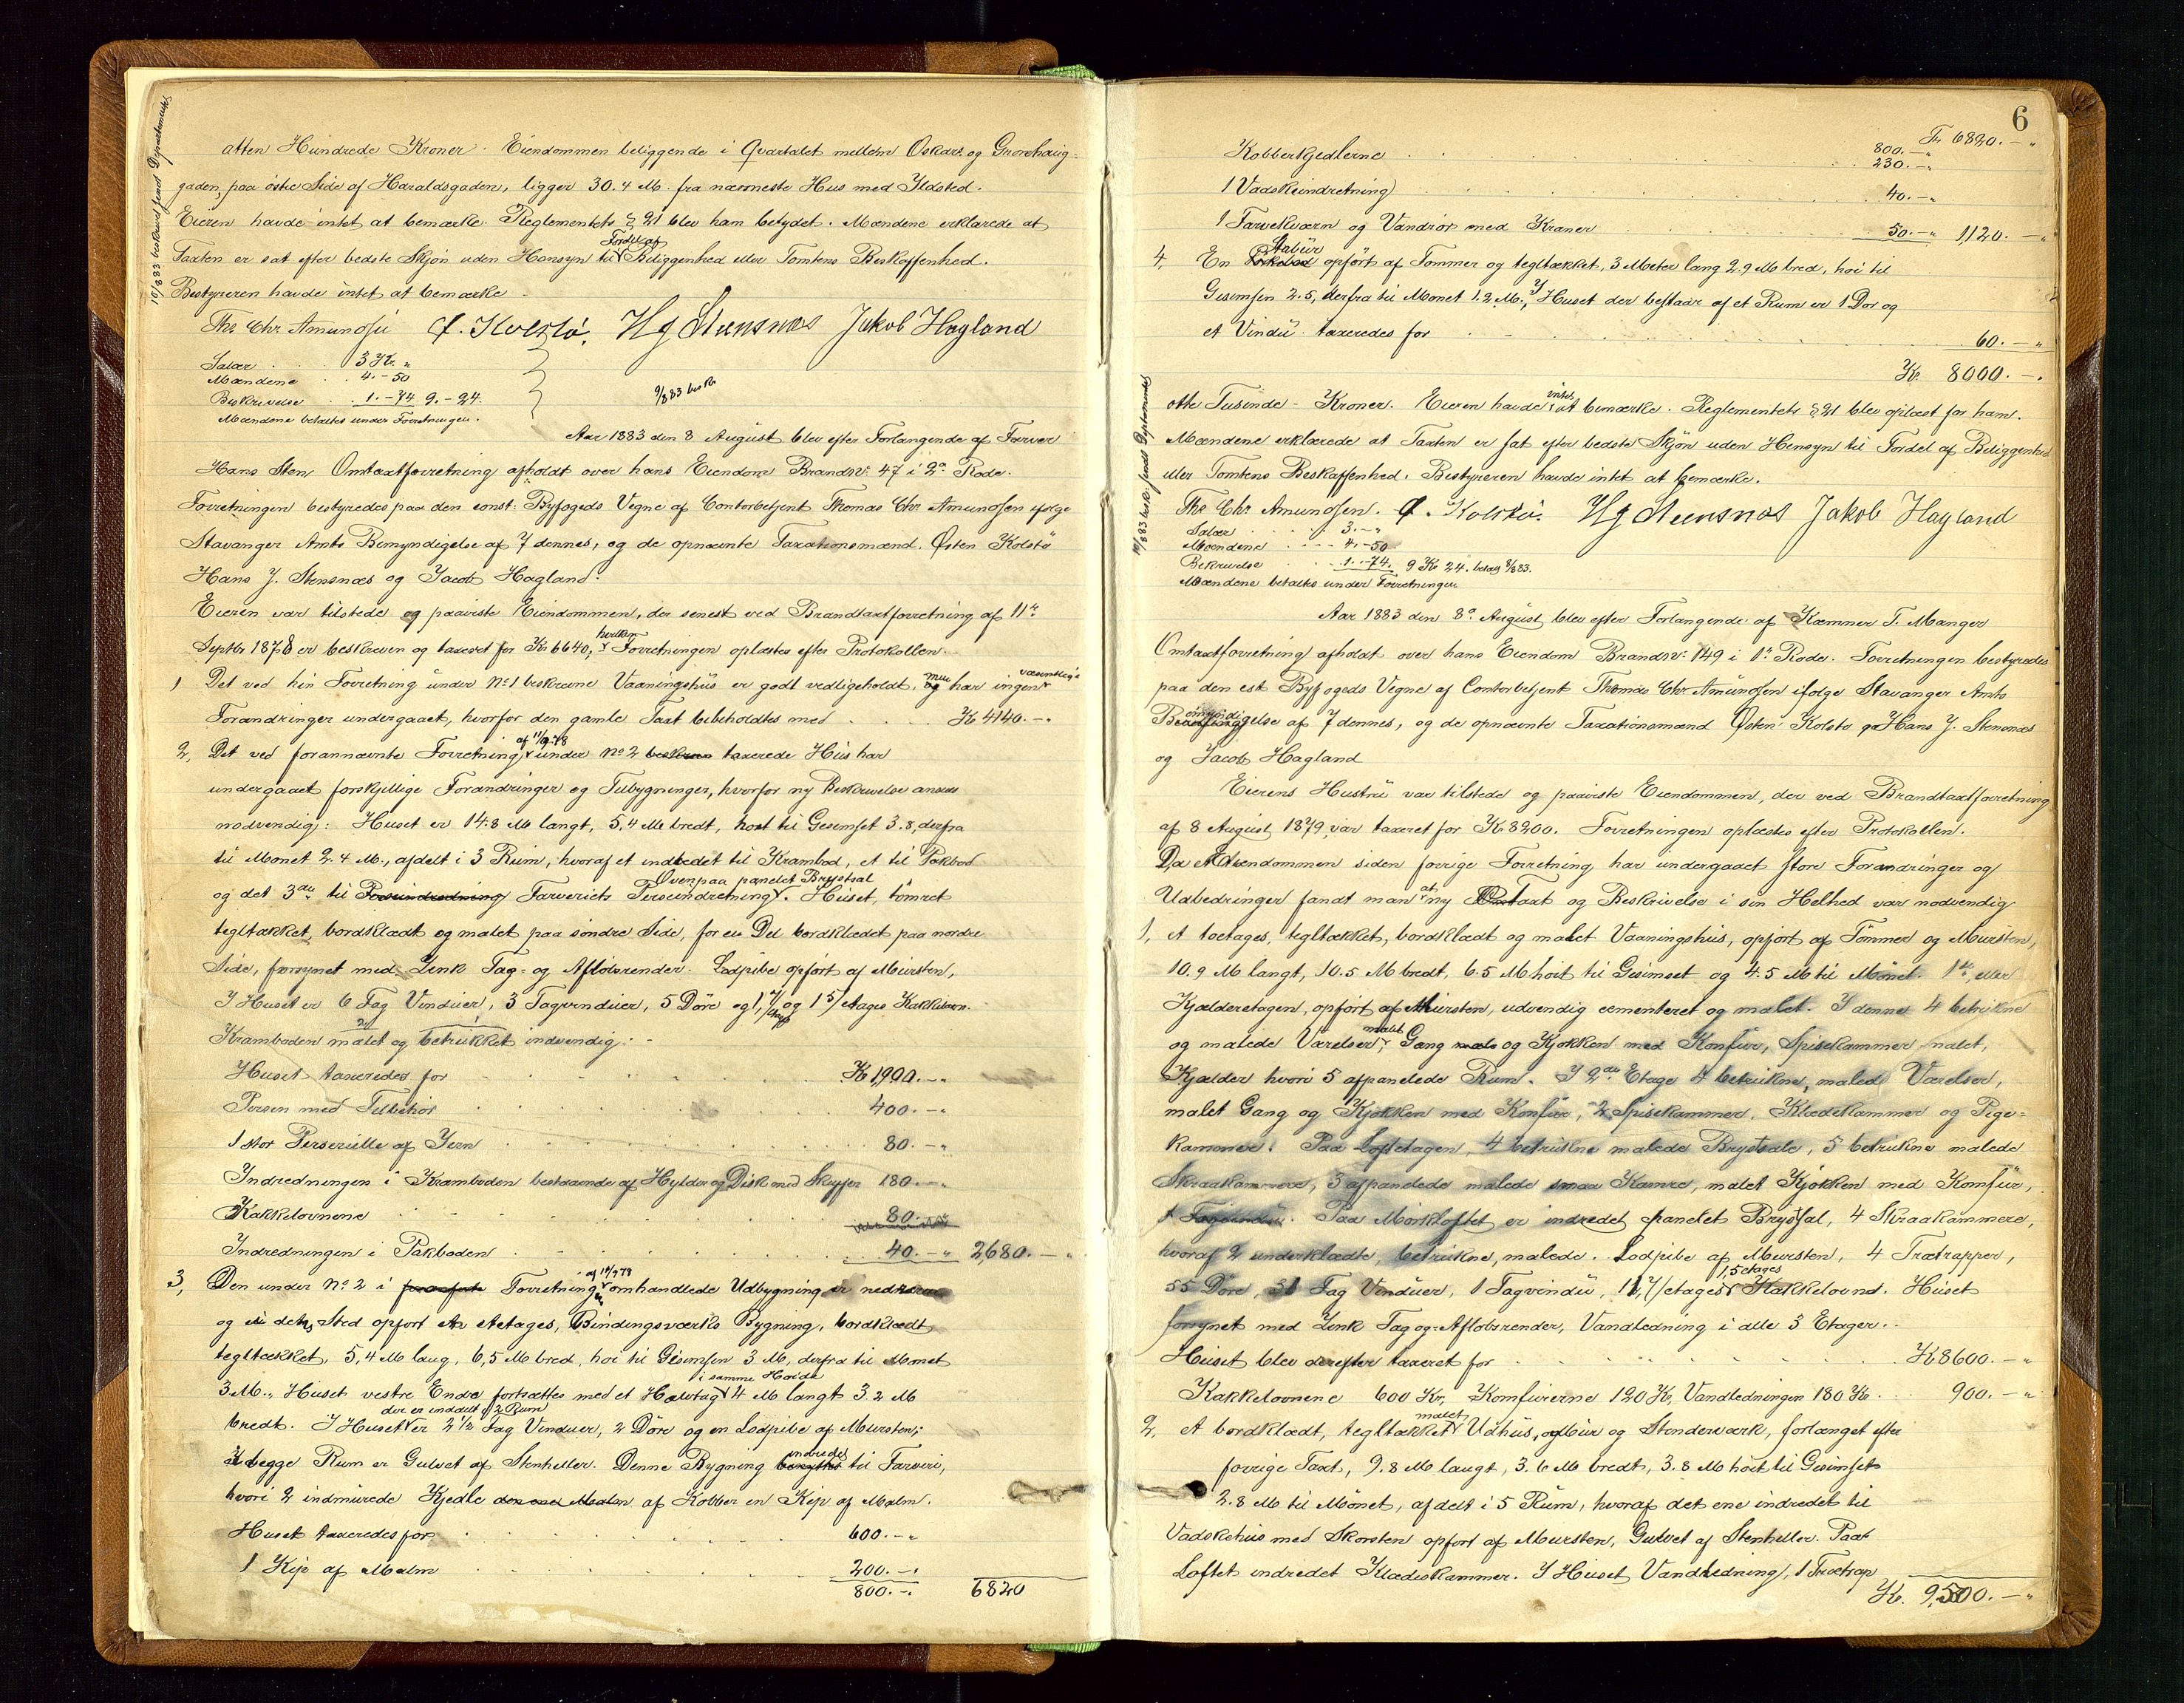 10/8 83 beskrevet sendt Departementet
atten Hundrede Kroner. Eiendommen beliggende i Qvartalet mellem Oskars og Gronhaug-
gaden, paa östre Side af Haraldsgaden, ligger 30.4 M. fra nærmeste Hus med Ildsted.
Eieren havde intet at bemærke. Reglementets § 21 blev ham betydet. Mændene erklærede at
Taxten er sat efter bedste Skjön uden Hensyn til Fordel af Beliggenhed eller Tomtens Beskaffenhed.
Bestyreren havde intet at bemærke.
Ths Chr Amundsen Ø. Kolstö. H J Stensnæs Jakob Hagland
Salær . . 3 Kr. "
Mændene . . 4.-50
Beskrivelse . . 1.-74 9.-24.
Mændene betaltes under Forretningen.
9/8 83 besk.
Aar 1883 den 8 August blev efter Forlangende af Farver
Hans Sten Omtaxtforretning afholdt over hans Eiendom Brandnr. 47 i 2n Rode.
Forretningen bestyredes paa den const. Byfogeds Vegne af Contorbetjent Thomas Chr. Amundsen ifølge
Stavanger Amts Bemyndigelse af 7 dennes, og de opnævnte Taxationsmænd. Østen Kolstö
Hans J. Stensnæs og Jacob Hagland.
Eieren var tilstede og paaviste Eiendommen, der senest ved Brandtaxtforretning af 11te
Septbr 1878 er beskreven og taxeret for Kr 6640, hvilken Forretningen oplæstes efter Protokollen.
1 Det ved hin Forretning under No 1 beskrevne Vaaningshus er godt vedligeholdt, men og har ingen væsentlige
Forandringer undergaaet, hvorfor den gamle Taxt bibeholdtes med . . . . Kr 4140.-"
2, Det ved forannævnte Forretning af 11/9 78 under No 2 beskrevne taxerede Hus har
undergaaet forskjellige Forandringer og Tilbygninger, hvorfor ny Beskrivelse ansaaes
nodvendig: Huset er 14.8 M langt, 5,4 M bredt, hoit til Gesimset 3.8, derfra
til Mönet 2.4 M., afdelt i 3 Rum, hvoraf et indredet til Krambod, et til Pakbod
og det 3die til Farveriets Perseindretning. Ovenpaa panelet Brystsal. Huset, tömret
tegltækket, bordklædt og malet paa söndre Side, for en Del bordklædet paa nordre
Side, forsynet med Zink Tag- og Aflöbsrender. Lodpibe opfört af Mursten,
I Huset er 6 Fag Vinduer, 3 Tagvinduer, 5 Döre og 1, og 1 5/ etages Kakkelovn.
Kramboden malet og betrukket indvendig.
Huset taxeredes for . . . . Kr 1900.-"
Persen med Tilbehör . . . . 400.-"
1 stor Perserulle af Jern . . . . 80.-"
Indredningen i Kramboden bestaaende af Hylder og Disk med Skuffer 180.-"
Kakkelovnene . . . . 80.-"
Indredningen i Pakboden . . . . 40.-" 2,680.-"
3, Den under No 2 i Forretningen af 11/9 78 omhandlede Udbygning er nedreven
og i dets Sted opfort en 1 etages, Bindingsværks Bygning, bordklædt,
tegltækket, 5,4 M lang, 6,5 M bred, höi til Gesimsen 3 M, derfra til Mönet
3 M., Huset vestre Ende fortsættes med et Halvtag i samme Höide 4 M langt 3.2 M
bredt. I Huset der er inddelt i 2 Rum er 2 1/2 Fag Vinduer, 2 Döre og en Lodpibe af Mursten;
I begge Rum er Gulvet af Stenheller. Denne Bygning benyttes indredet til Farveri,
hvori 2 indmurede Kjedle af Kobber en Kip af Malm.
Huset taxeredes for . . . . 600.-"
1 Kip af Malm . . . . 200.-"
800.-" 6820
6
Tr. 6820.-"
800.-"
Kobberkjedlerne . . . . 230.-"
1 Vadskeindretning . . . . 40.-"
1 Farvekværn og Vandrör med Kraner . . . . 50.-" 1,120.-"
4, En Stabur opfört af Tommer og tegltækket, 3 Meter lang 2.9 M bred, höi til
Gesimsen 2.5, derfra til Mönet 1.2 M., I Huset der bestaar af et Rum er 1 Dör og
et Vindu taxeredes for . . . . 60.-"
Kr 8000.-"
10/8 83 beskr. sendt Departementet
otte Tusinde Kroner. Eieren havde intet at bemærke. Reglementets § 21 blev oplæst for ham.
Mændene erklærede at Taxten er sat efter bedste Skjön uden Hensyn til Fordel af Beliggenhed
eller Tomtens Beskaffenhed. Bestyreren havde intet at bemærke.
Ths Chr Amundsen. Ø. Kolstö. H J Stensnæs Jakob Hagland
Salær . . . 3.-"
Mændene . . . 4.-50
Beskrivelse . . . 1.-74. 9 Kr 24. betalt 9/8 83.
Mændene betaltes under Forretningen
Aar 1883 den 8de August blev efter Forlangende af Kæmner T. Manger
Omtaxtforretning afholdt over hans Eiendom Brandnr. 149 i 1n Rode. Forretningen bestyredes
paa den cst Byfogeds Vegne af Contorbetjent Thomas Chr Amundsen ifolge Stavanger Amts
Bemyndigelse af 7 dennes, og de opnævnte Taxationsmænd Østen Kolsto Hans J. Stensnæs
og Jacob Hagland
Eierens Hustru var tilstede og paaviste Eiendommen, der ved Brandtaxtforretning
af 8 August 1879 var taxeret for Kr 8200. Forretningen oplæstes efter Protokollen.
Da Eiendommen siden forrige Forretning har undergaaet store Forandringer og
Udbedringer fandt man at ny Taxt og Beskrivelse i sin Helhed var nodvendig
1, et toetages, tegltækket, bordklædt og malet Vaaningshus, opfört af Tömmer og Mursten,
10.9 M langt, 10.5 M bredt, 6.5 M höit til Gesimset og 4.5 M til Mönet. 1ste eller
Kjælderetagen, opfört af Mursten, udvendig cementeret og malet. I denne 4 betrukne
og malede Værelser, malet Gang og Kjökken med Komfur, Spisekammer malet,
Kjælder hvori 5 afpanelede Rum. I 2den Etage 4 betrukne, malede Værelser,
malet Gang og Kjökken med Komfur, 2 Spisekammer, Klædekammer og Pige-
kammer. Paa Loftetagen, 4 betrukne malede Brystsale, 5 betrukne malede
Skraakammere, 3 afpanelede malede smaa Kamre, malet Kjökken med Komfur,
1 Tagvindu. Paa Mörkloftet er indredet panelet Brystsal, 4 Skraakammere,
hvoraf 2 underklædte, betrukne, malede. Lodpibe af Mursten, 4 Trætrapper,
55 Döre, 31 Fag Vinduer, 1 Tagvindu, 11, etages 1, 5 etages Kakkelovnd. Huset
forsynet med Zink Tag og Aflöbsrender, Vandledning i alle 3 Etager.
Huset blev derefter taxeret for . . . . Kr 8600.-"
Kakkelovnene 600 Kr, Komfurerne 120 Kr, Vandledningen 180 Kr . . 900.-"
2, et bordklædt, tegltækket malet Udhus, af Mur og Stenderværk, forlænget efter
forrige Taxt, 9.8 M langt, 3.6 M bredt, 3.8 M höit til Gesimset
2.8 M til Mönet, afdelt i 5 Rum, hvoraf det ene indredet til
Vadskehus med Skorsten opfort af Mursten, Gulvet af Stenheller. Paa
Loftet indredet Klædeskammer. I Huset Vandledning, 1 Trætrap
Kr. 9,500.-"